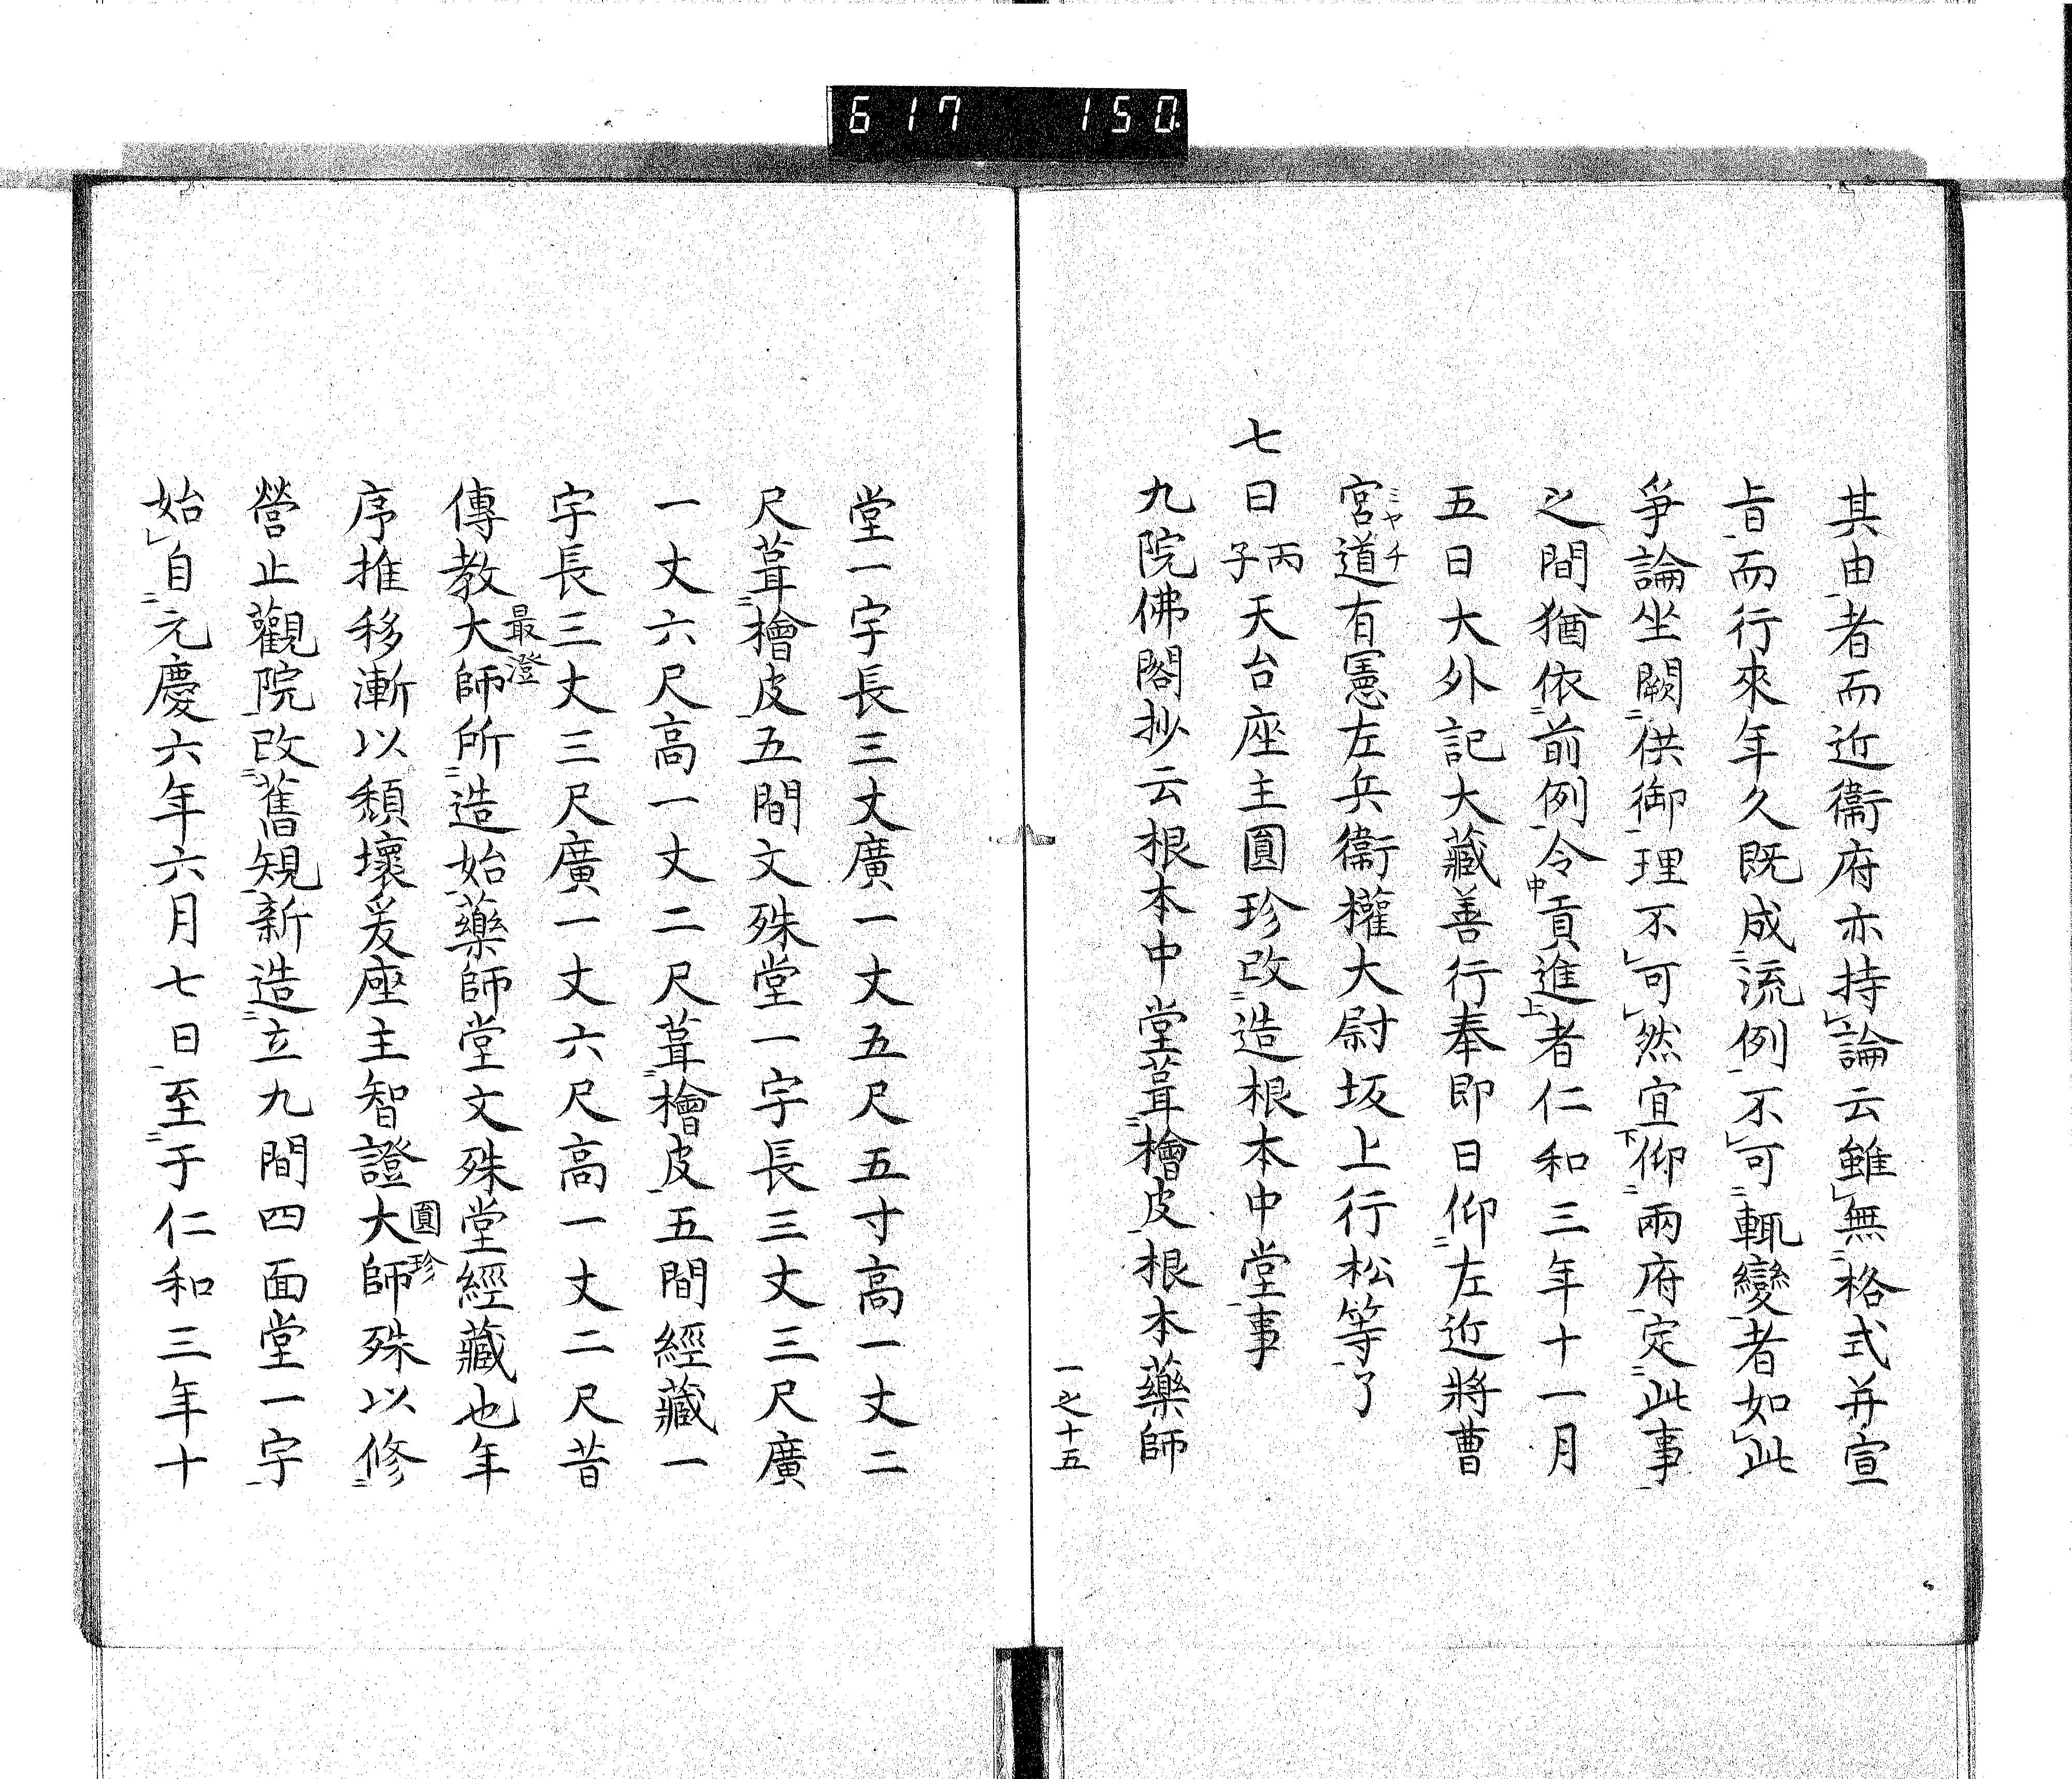 617 150
其由者而近衞府亦持論云雖無格式并宣
旨而行來年久既成流例不可輙變者如此
爭論坐闕供御理不可然宜仰兩府定此事
之間猶依前例令貢進者仁和三年十一月
五日大外記大藏善行奉即日仰左近將曹
宮道有憲左兵衞權大尉坂上行松等了
ミヤチ
七日丙子天台座主圓珍改造根本中堂事
九院佛閣抄云根本中堂葺檜皮根本藥師
一之十五
堂一宇長三丈廣一丈五尺五寸高一丈二
尺葺檜皮五間文殊堂一宇長三丈三尺廣
一丈六尺高一丈二尺葺檜皮五間經藏一
宇長三丈三尺廣一丈六尺高一丈二尺昔
傳教大師所造始藥師堂文殊堂經藏也年
最澄
序推移漸以頽壞爰座主智證大師殊以修
圓珍
營止觀院改舊規新造立九間四面堂一宇
始自元慶六年六月七日至于仁和三年十